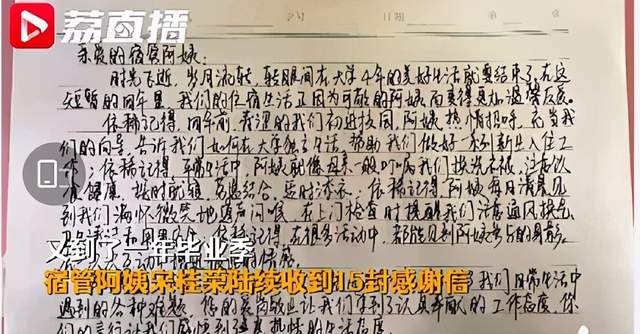 荔直播
亲爱的宿管阿姨：
时光飞逝，岁月流转，转眼间在大学4年的美好生活就要结束了，在这
短暂的四年里，我们的住宿生活正因为可敬的阿姨而变得更加温馨
依稀记得，四年前，懵懂的我们初进校园，阿姨热情招呼，充当我
们的向导，告诉我们如何在大学独立生活，帮助我们做好一系列新生入住工
作；依稀记得，平常生活中，阿姨就像母亲一般叮嘱我们
健康，按时就寝，劳逸结合，适时添衣；依稀记得，阿姨每日清晨见
到我们满怀微笑地逐声问候，在上门检查时提醒我们注意通风换气
在很多活动中，都能见到阿姨参与的身影
又到了一年毕业季
宿管阿姨宋桂荣陆续收到15封感谢信
我们日常生活中
遇到的各种难题，您的爱岗敬业让我们看到了认真奉献的工作态度，你
们的言行让我们感悟到了热情的生活态度